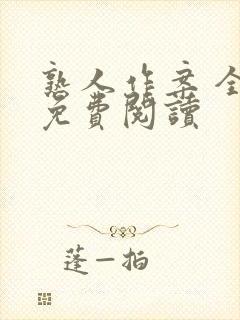 熟人作案全
免費閱讀
蓬一拍